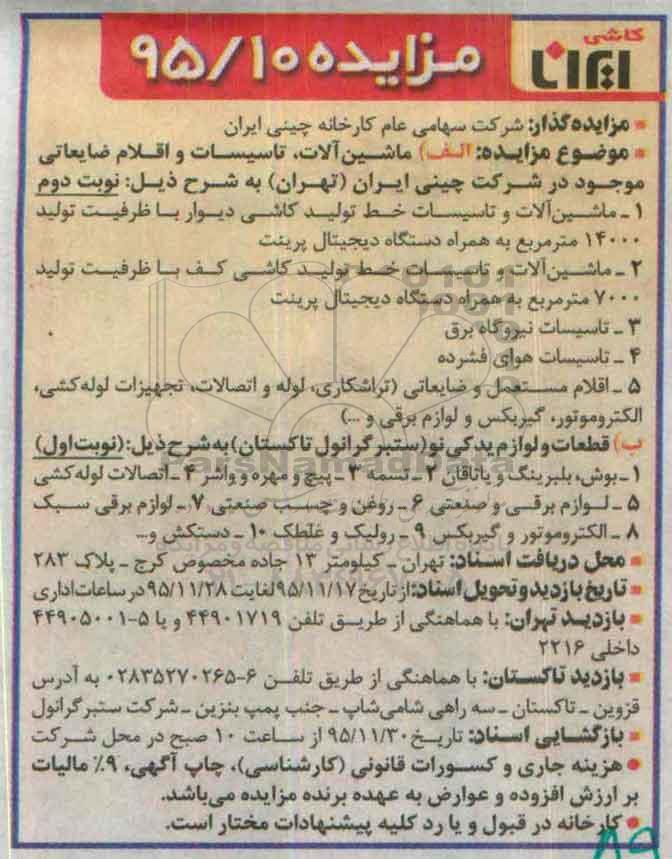 کاشی
ایرانا
مزایده ۹۵/۱۰
مزایده‌گذار: شرکت سهامی عام کارخانه چینی ایران
موضوع مزایده: الف) ماشین‌آلات، تاسیسات و اقلام ضایعاتی
موجود در شرکت چینی ایران (تهران) به شرح ذیل: نوبت دوم
۱ ـ ماشین‌آلات و تاسیسات خط تولید کاشی دیوار با ظرفیت تولید
۱۴۰۰۰ مترمربع به همراه دستگاه دیجیتال پرینت
۲ ـ ماشین‌آلات و تاسیسات خط تولید کاشی کف با ظرفیت تولید
۷۰۰۰ مترمربع به همراه دستگاه دیجیتال پرینت
۳ ـ تاسیسات نیروگاه برق
۴ ـ تاسیسات هوای فشرده
۵ ـ اقلام مستعمل و ضایعاتی (تراشکاری، لوله و اتصالات، تجهیزات لوله‌کشی،
الکتروموتور، گیربکس و لوازم برقی و ...)
ب) قطعات و لوازم یدکی نو (ستبر گرانول تاکستان) به شرح ذیل: (نوبت اول)
۱ـ بوش، بلبرینگ و یاتاقان ۲ ـ تسمه ۳ ـ پیچ و مهره و واشر ۴ ـ اتصالات لوله‌کشی
۵ ـ لوازم برقی و صنعتی ۶ ـ روغن و چسب صنعتی ۷ ـ لوازم برقی سبک
۸ ـ الکتروموتور و گیربکس ۹ ـ رولیک و غلطک ۱۰ ـ دستکش و...
محل دریافت اسناد: تهران ـ کیلومتر ۱۳ جاده مخصوص کرج ـ پلاک ۲۸۳
تاریخ بازدید و تحویل اسناد: از تاریخ ۹۵/۱۱/۱۷ لغایت ۹۵/۱۱/۲۸ در ساعات اداری
بازدید تهران: با هماهنگی از طریق تلفن ۴۴۹۰۱۷۱۹ و یا ۵-۴۴۹۰۵۰۰۱
داخلی ۲۲۱۶
بازدید تاکستان: با هماهنگی از طریق تلفن ۶-۰۲۸۳۵۲۷۰۲۶۵ به آدرس
قزوین ـ تاکستان ـ سه راهی شامی‌شاپ ـ جنب پمپ بنزین ـ شرکت ستبر گرانول
بازگشایی اسناد: تاریخ ۹۵/۱۱/۳۰ از ساعت ۱۰ صبح در محل شرکت
هزینه جاری و کسورات قانونی (کارشناسی)، چاپ آگهی، ۹٪ مالیات
بر ارزش افزوده و عوارض به عهده برنده مزایده می‌باشد.
کارخانه در قبول و یا رد کلیه پیشنهادات مختار است.
ParsNamadData